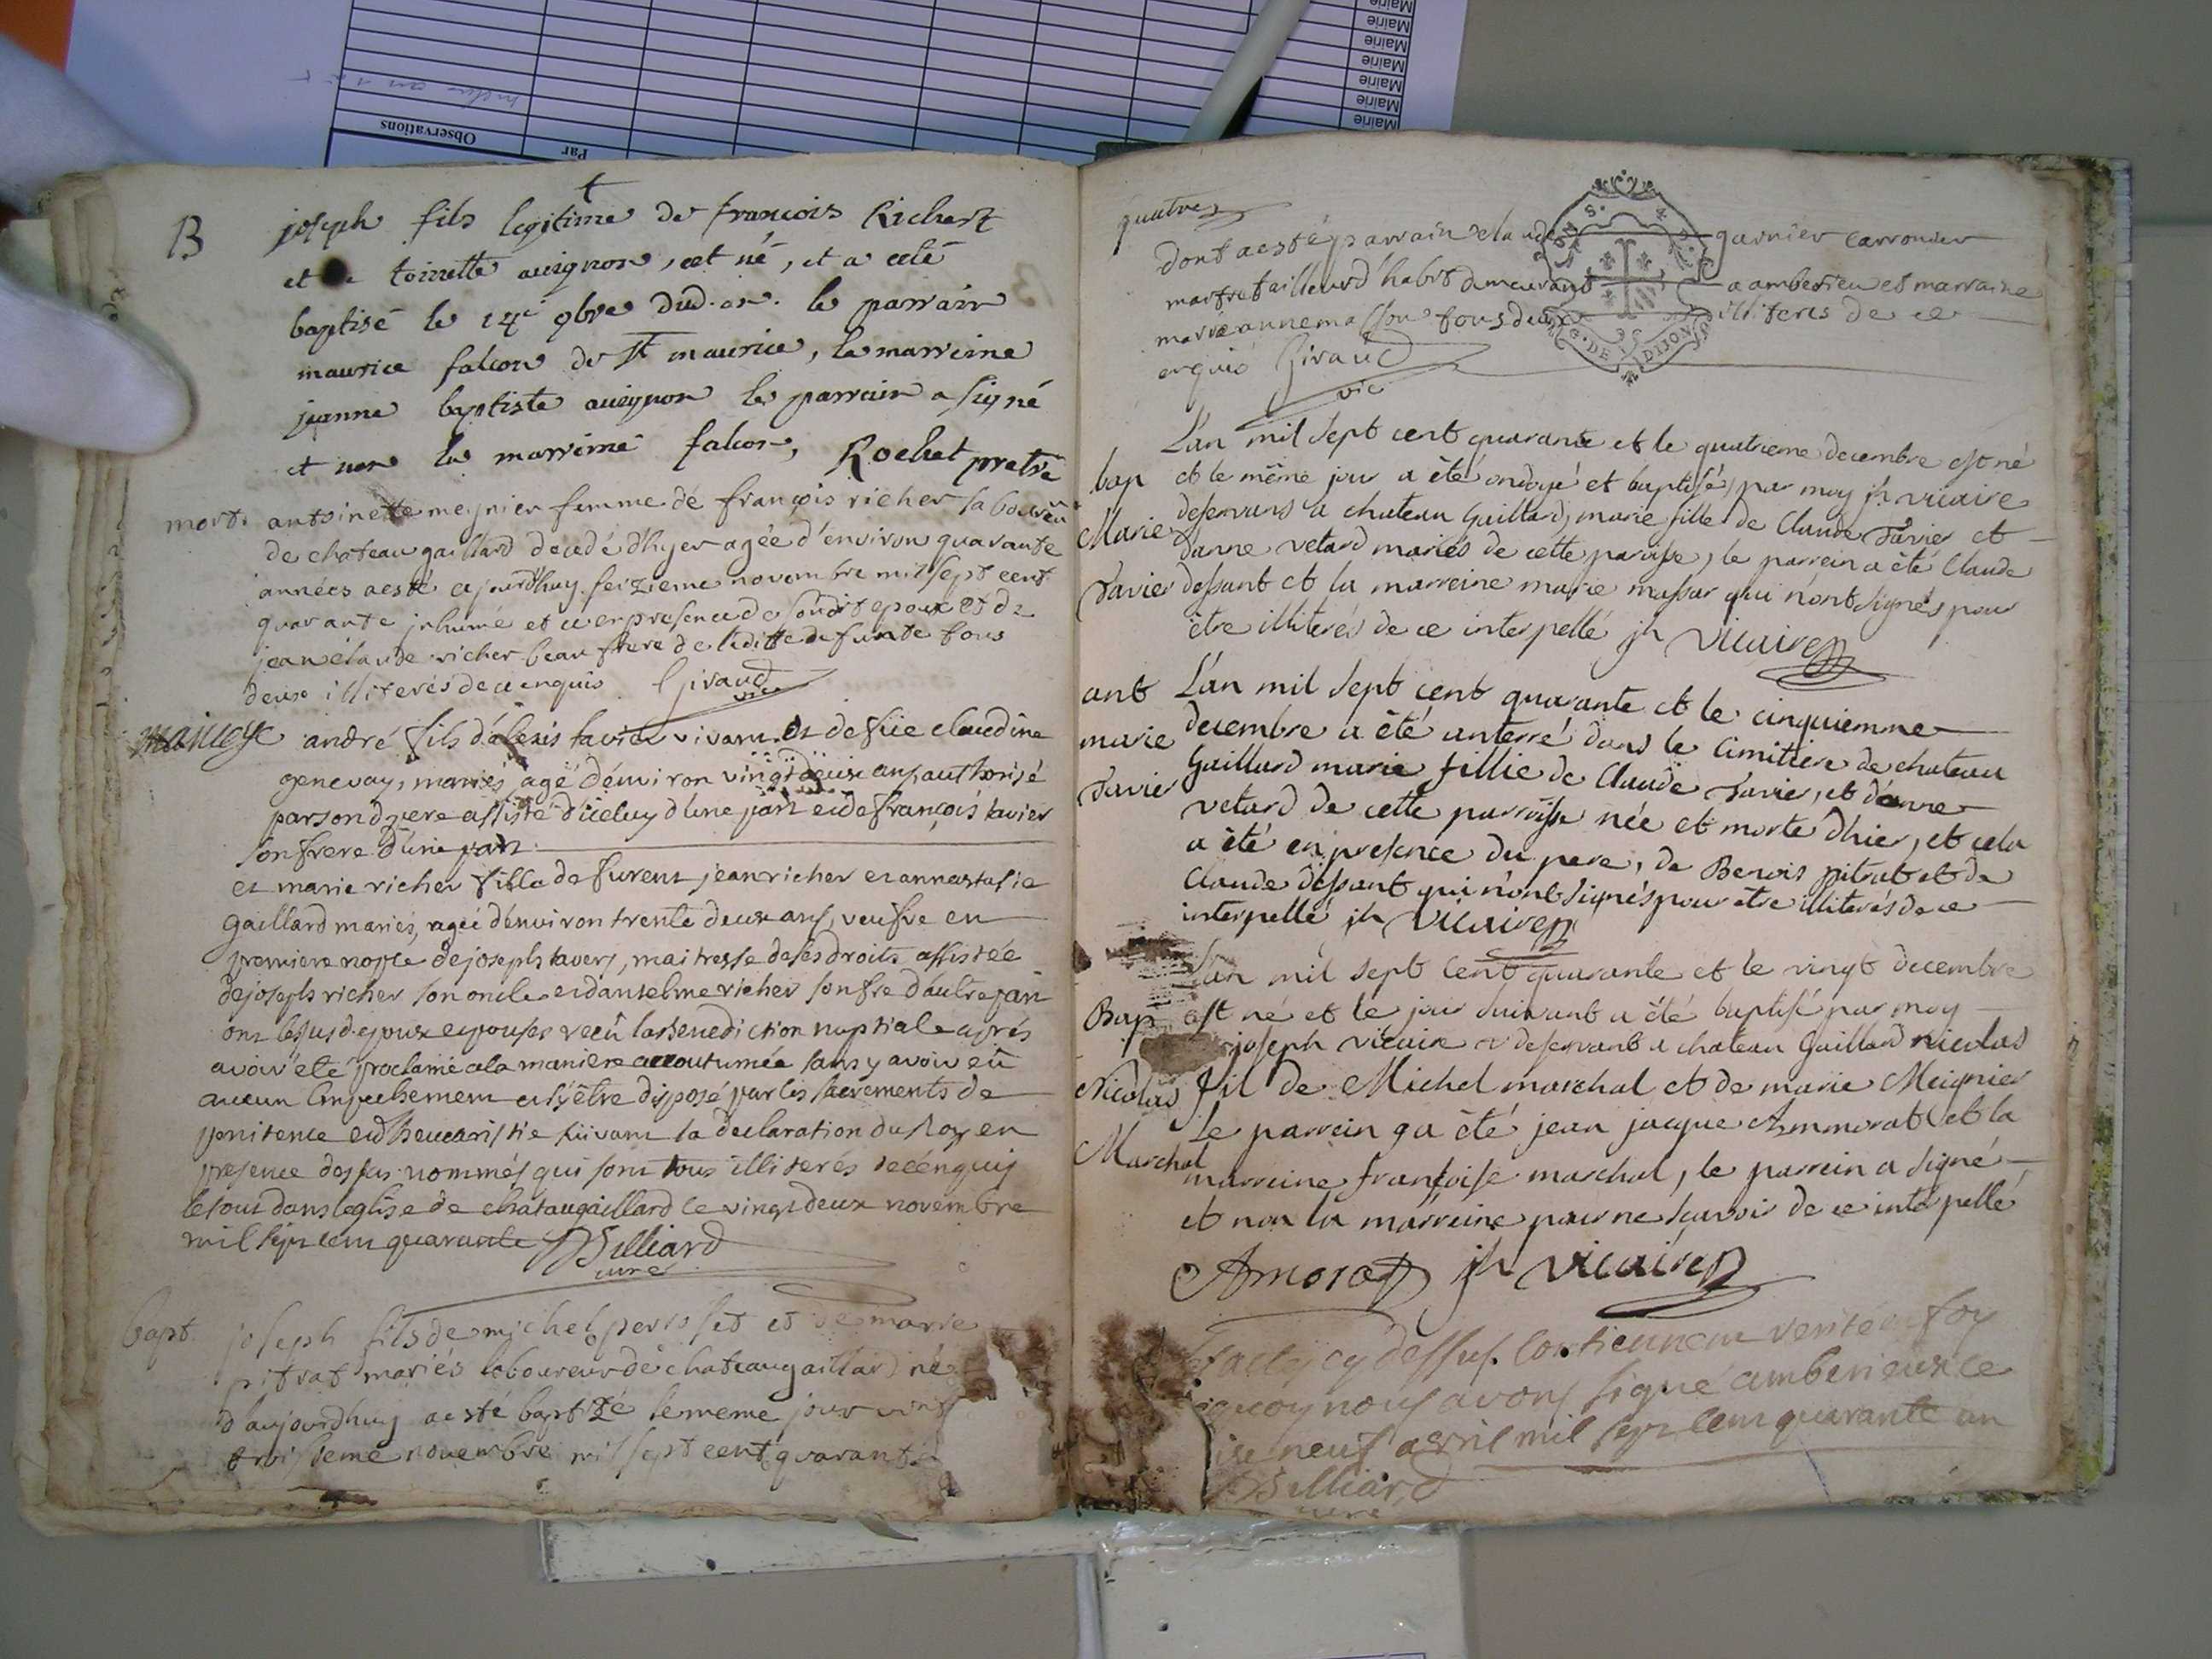 Mairie
Mairie
Mairie
Mairie
Mairie
Mairie
Mairie
Observations
Par
B
joseph fils legitime de francois Richert
et toinette auignon, est né, et a eté
baptisé le 14e 9bre dud. an. le parrain
maurice falcon de St maurice, la marreine
jeanne baptiste auignon le parrain a signé
et non la marreine falcon, Rochet pretre
mort. antoinette megnier femme de françois richer laboureur
de chateau gaillard decedé dhyer agée d'environ quarante
années aesté cejourd'huy seizieme novembre mil sept cent
quarante inhumé et ce en presence de sondit epoux et de
jean claude richer beau frere de laditte defunte tous
deux illiterés de ce enquis Giraud
vic
mariage andré fils d'alexis tavier vivant et de füe claudine
genevay, mariés, agé d'environ vingt deux ans, authorisé
par son d. pere assisté d'iceluy d'une part et de françois tavier
son frere d'une part
et marie richer fille de furent jean richer et annastasie
gaillard mariés, agée d'environ trente deux ans, veufve en
premiere nopce de joseph tavers, maitresse de ses droits assistée
de joseph richer son oncle et d'anselme richer son fre d'autre part
ont lessusd. epoux epouses recû la benediction nuptiale aprés
avoir été proclamé a la maniere accoutumée sans y avoir eû
aucun empechement et s'y être disposé par les sacrements de
penitence et d'heucaristie suivant la declaration du Roy en
presence des sus nommés qui sont tous illiterés de ce enquis
le tout dans l'eglise de chataugaillard le vingt deux novembre
mil sept cent quarante Billiard
curé
bapt. joseph fils de michel perisset et de marie
pitrat mariés laboureur de chateaugaillard né
d'aujourdhuy aesté baptizé le meme jour vint
troisieme novembre mil sept cent quarante
quatre
dont aesté parrain claude garnier carronier
maitre tailleur d'habit demeurant a amberieu et marraine
marie anne masson tous deux illiteres de ce
enquis Giraud
vic
G. DE DIJON
L'an mil sept cent quarante et le quatrieme decembre est né
bap et le même jour a été ondoyé et baptisé, par moy jh vicaire
deservans a chateau Gaillard, marie fille de Claude Tavier et
Marie danne vetard mariés de cette paroisse, le parrein a été Claude
Tavier dessant et la marreine marie massar qui n'ont signés pour
être illiterés de ce interpellé jh vicaire
ant L'an mil sept cent quarante et le cinquiemme
marie decembre a été anterré dans le Cimitiere de chateau
Tavier Gaillard marie fillie de Claude Tavier, et d'anne
vetard de cette parroisse née et morte d'hier, et cela
a été en presence du pere, de Benois pitrat et de
Claude dessant qui n'ont signés pour etre illiterés de ce
interpellé jh vicaire
L'an mil sept cent quarante et le vingt decembre
Bap est né et le jour suivant a été baptisé par moy
joseph vicaire deservant a chateau Gaillard nicolas
Nicolas fil de Michel marchal et de marie Meignier
Le parrein qa été jean jacque Ammorat et la
Marchal marreine françoise marchal, le parrein a signé
et non la marreine pour ne sçavoir de ce interpellé
Amorat jh vicaire
cy dessus contiennent verité en foy
quoy nous avons signé amberieux le
neuf avril mil sept cent quarante un
Billiard
curé